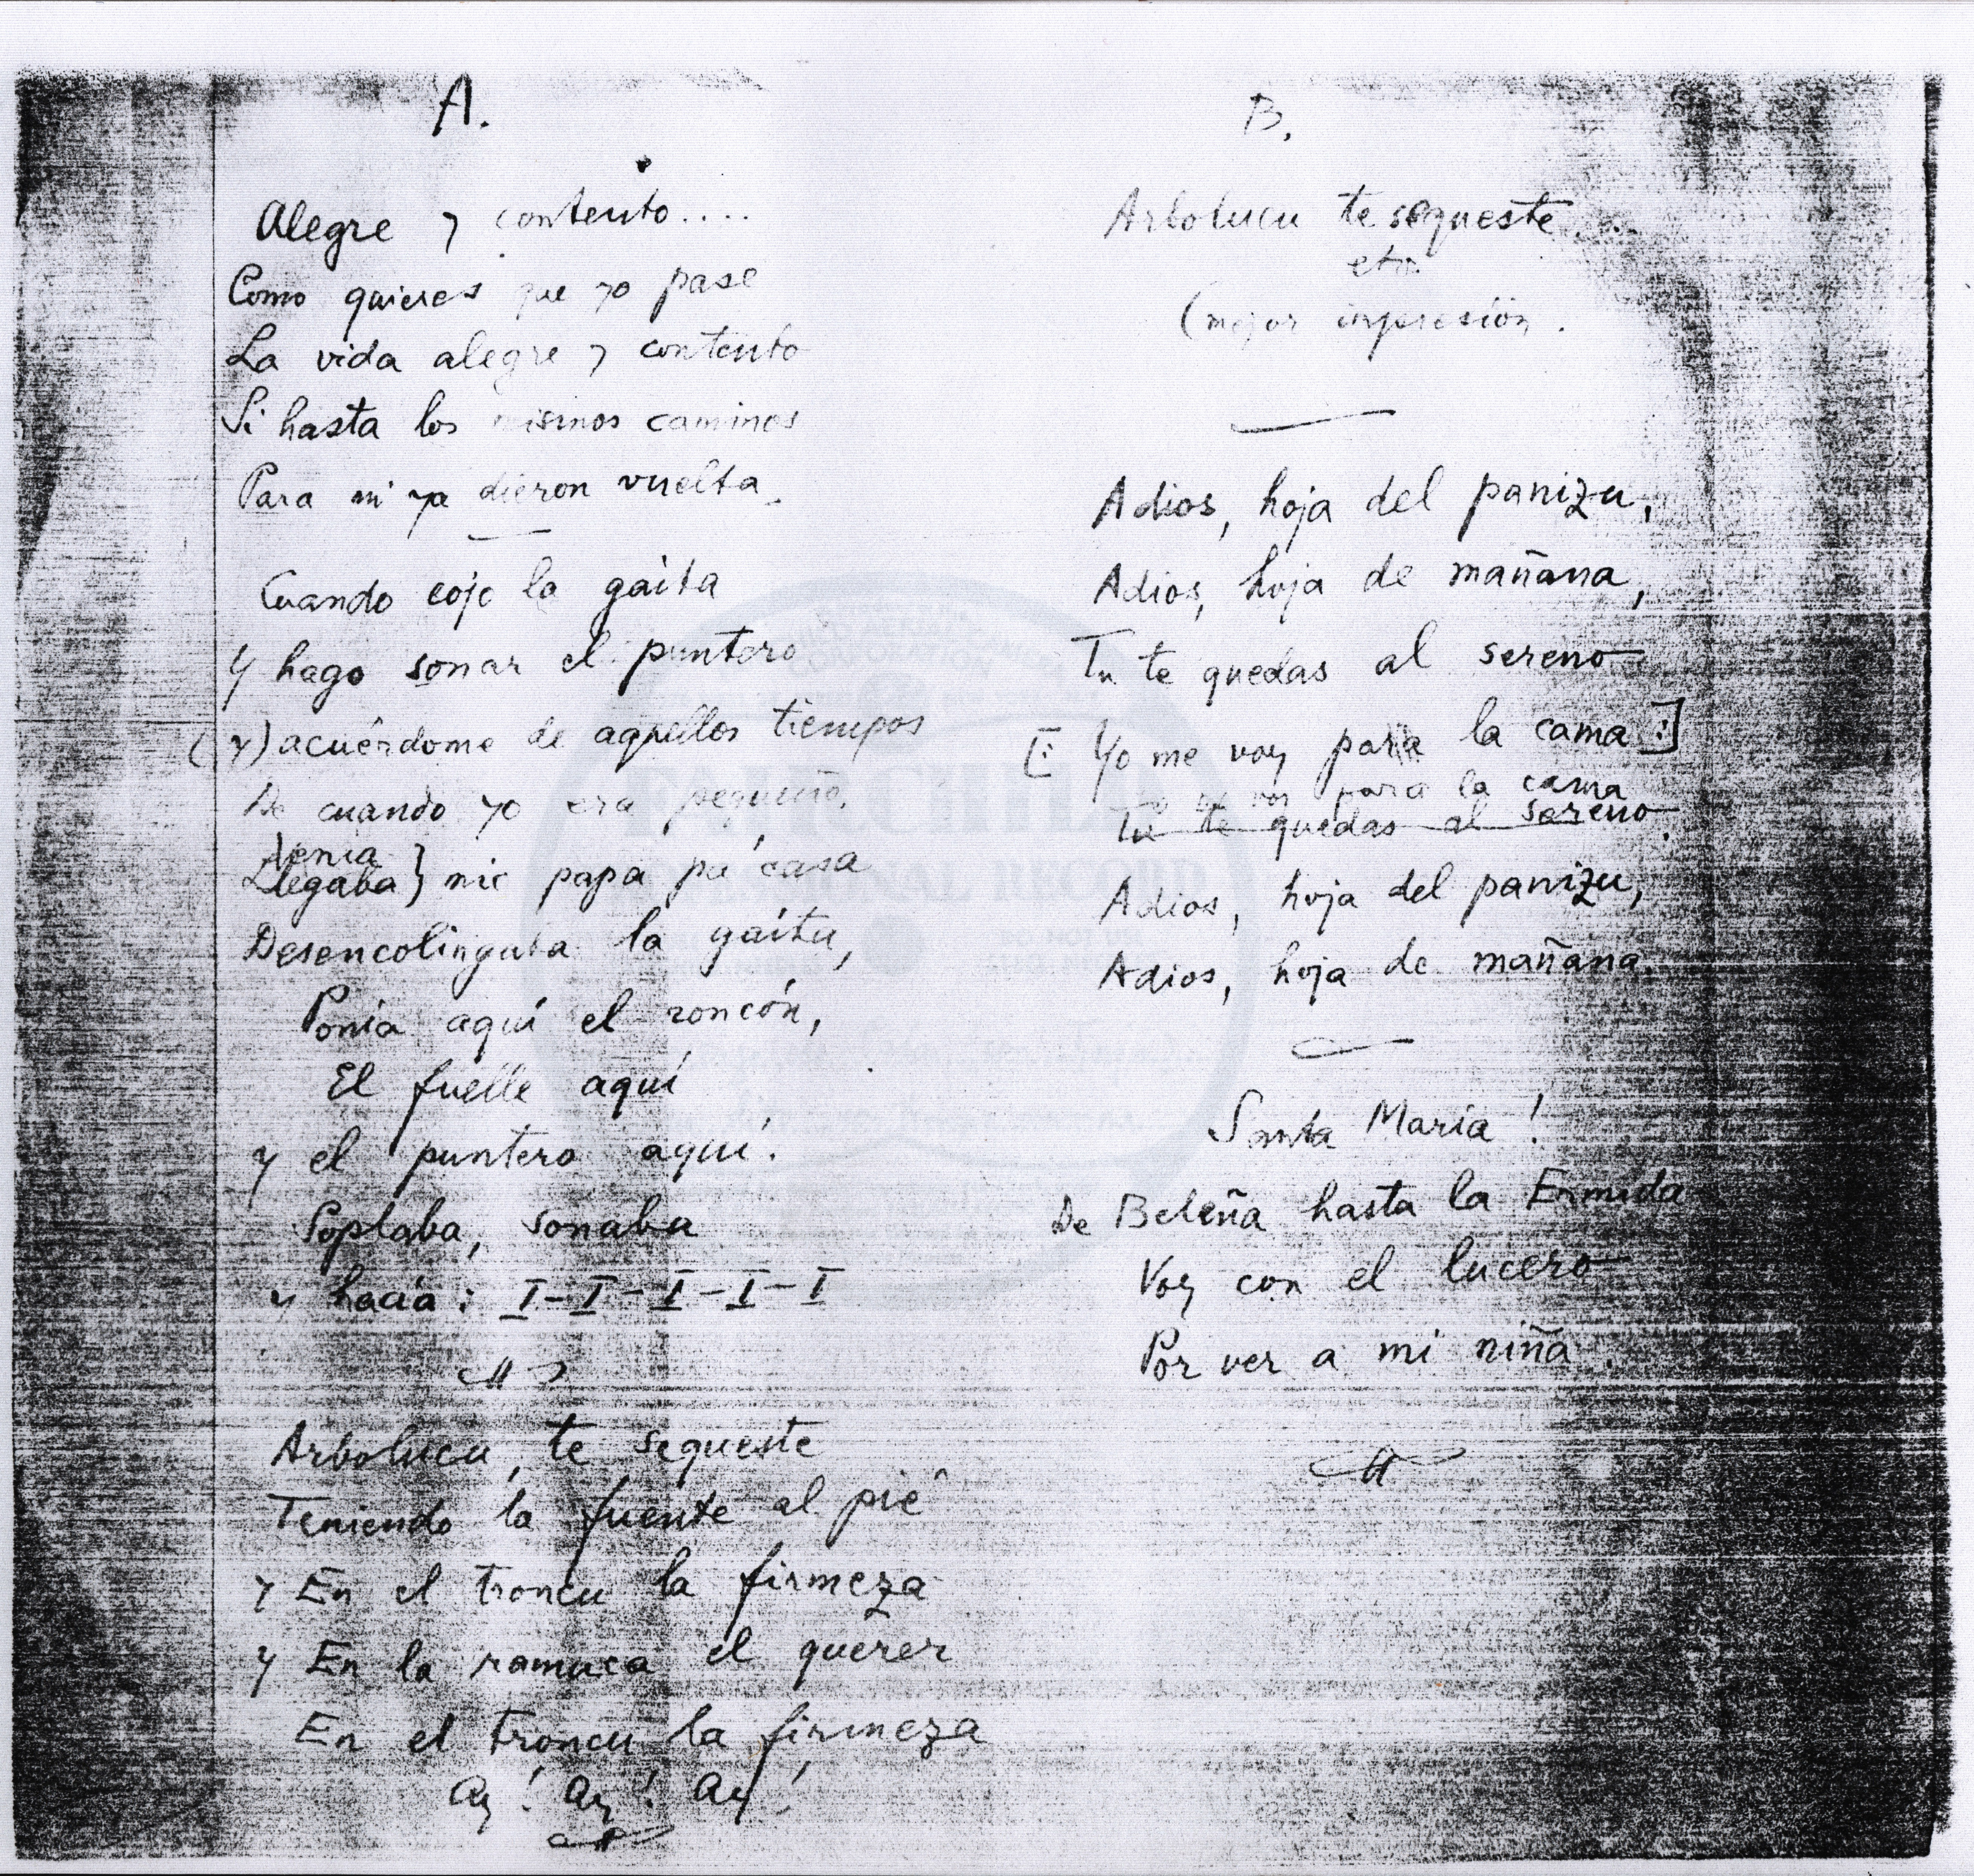 A.
Alegre y contento....
Como quieres que yo pase
La vida alegre y contento
Si hasta los mismos caminos
Para mi ya dieron vuelta.
Cuando cojo la gaita
Y hago sonar el puntero
(y) acuérdome de aquellos tiempos
De cuando yo era pequeño.
Venia
Llegaba } mi papa pa casa
Desencolingaba la gaita,
Ponía aquí el roncón,
El fuelle aquí
y el puntero aquí.
Soplaba, sonaba
y hacía: I-I-I-I-I
Arbolucu, te sequeste
Teniendo la fuente al pié
y En el troncu la firmeza
y En la ramuca el querer
En el troncu la firmeza
ay! ay! ay!
B.
Arbolucu te sequeste...
etc.
(mejor impresión.
Adios, hoja del panizu,
Adios, hoja de mañana,
Tu te quedas al sereno
[: Yo me voy para la cama :]
Yo me voy para la cama
Tu te quedas al sereno.
Adios, hoja del panizu,
Adios, hoja de mañana.
Santa María!
De Beleña hasta la Ermida
Voy con el lucero
Por ver a mi niña.
FAIRCHILD